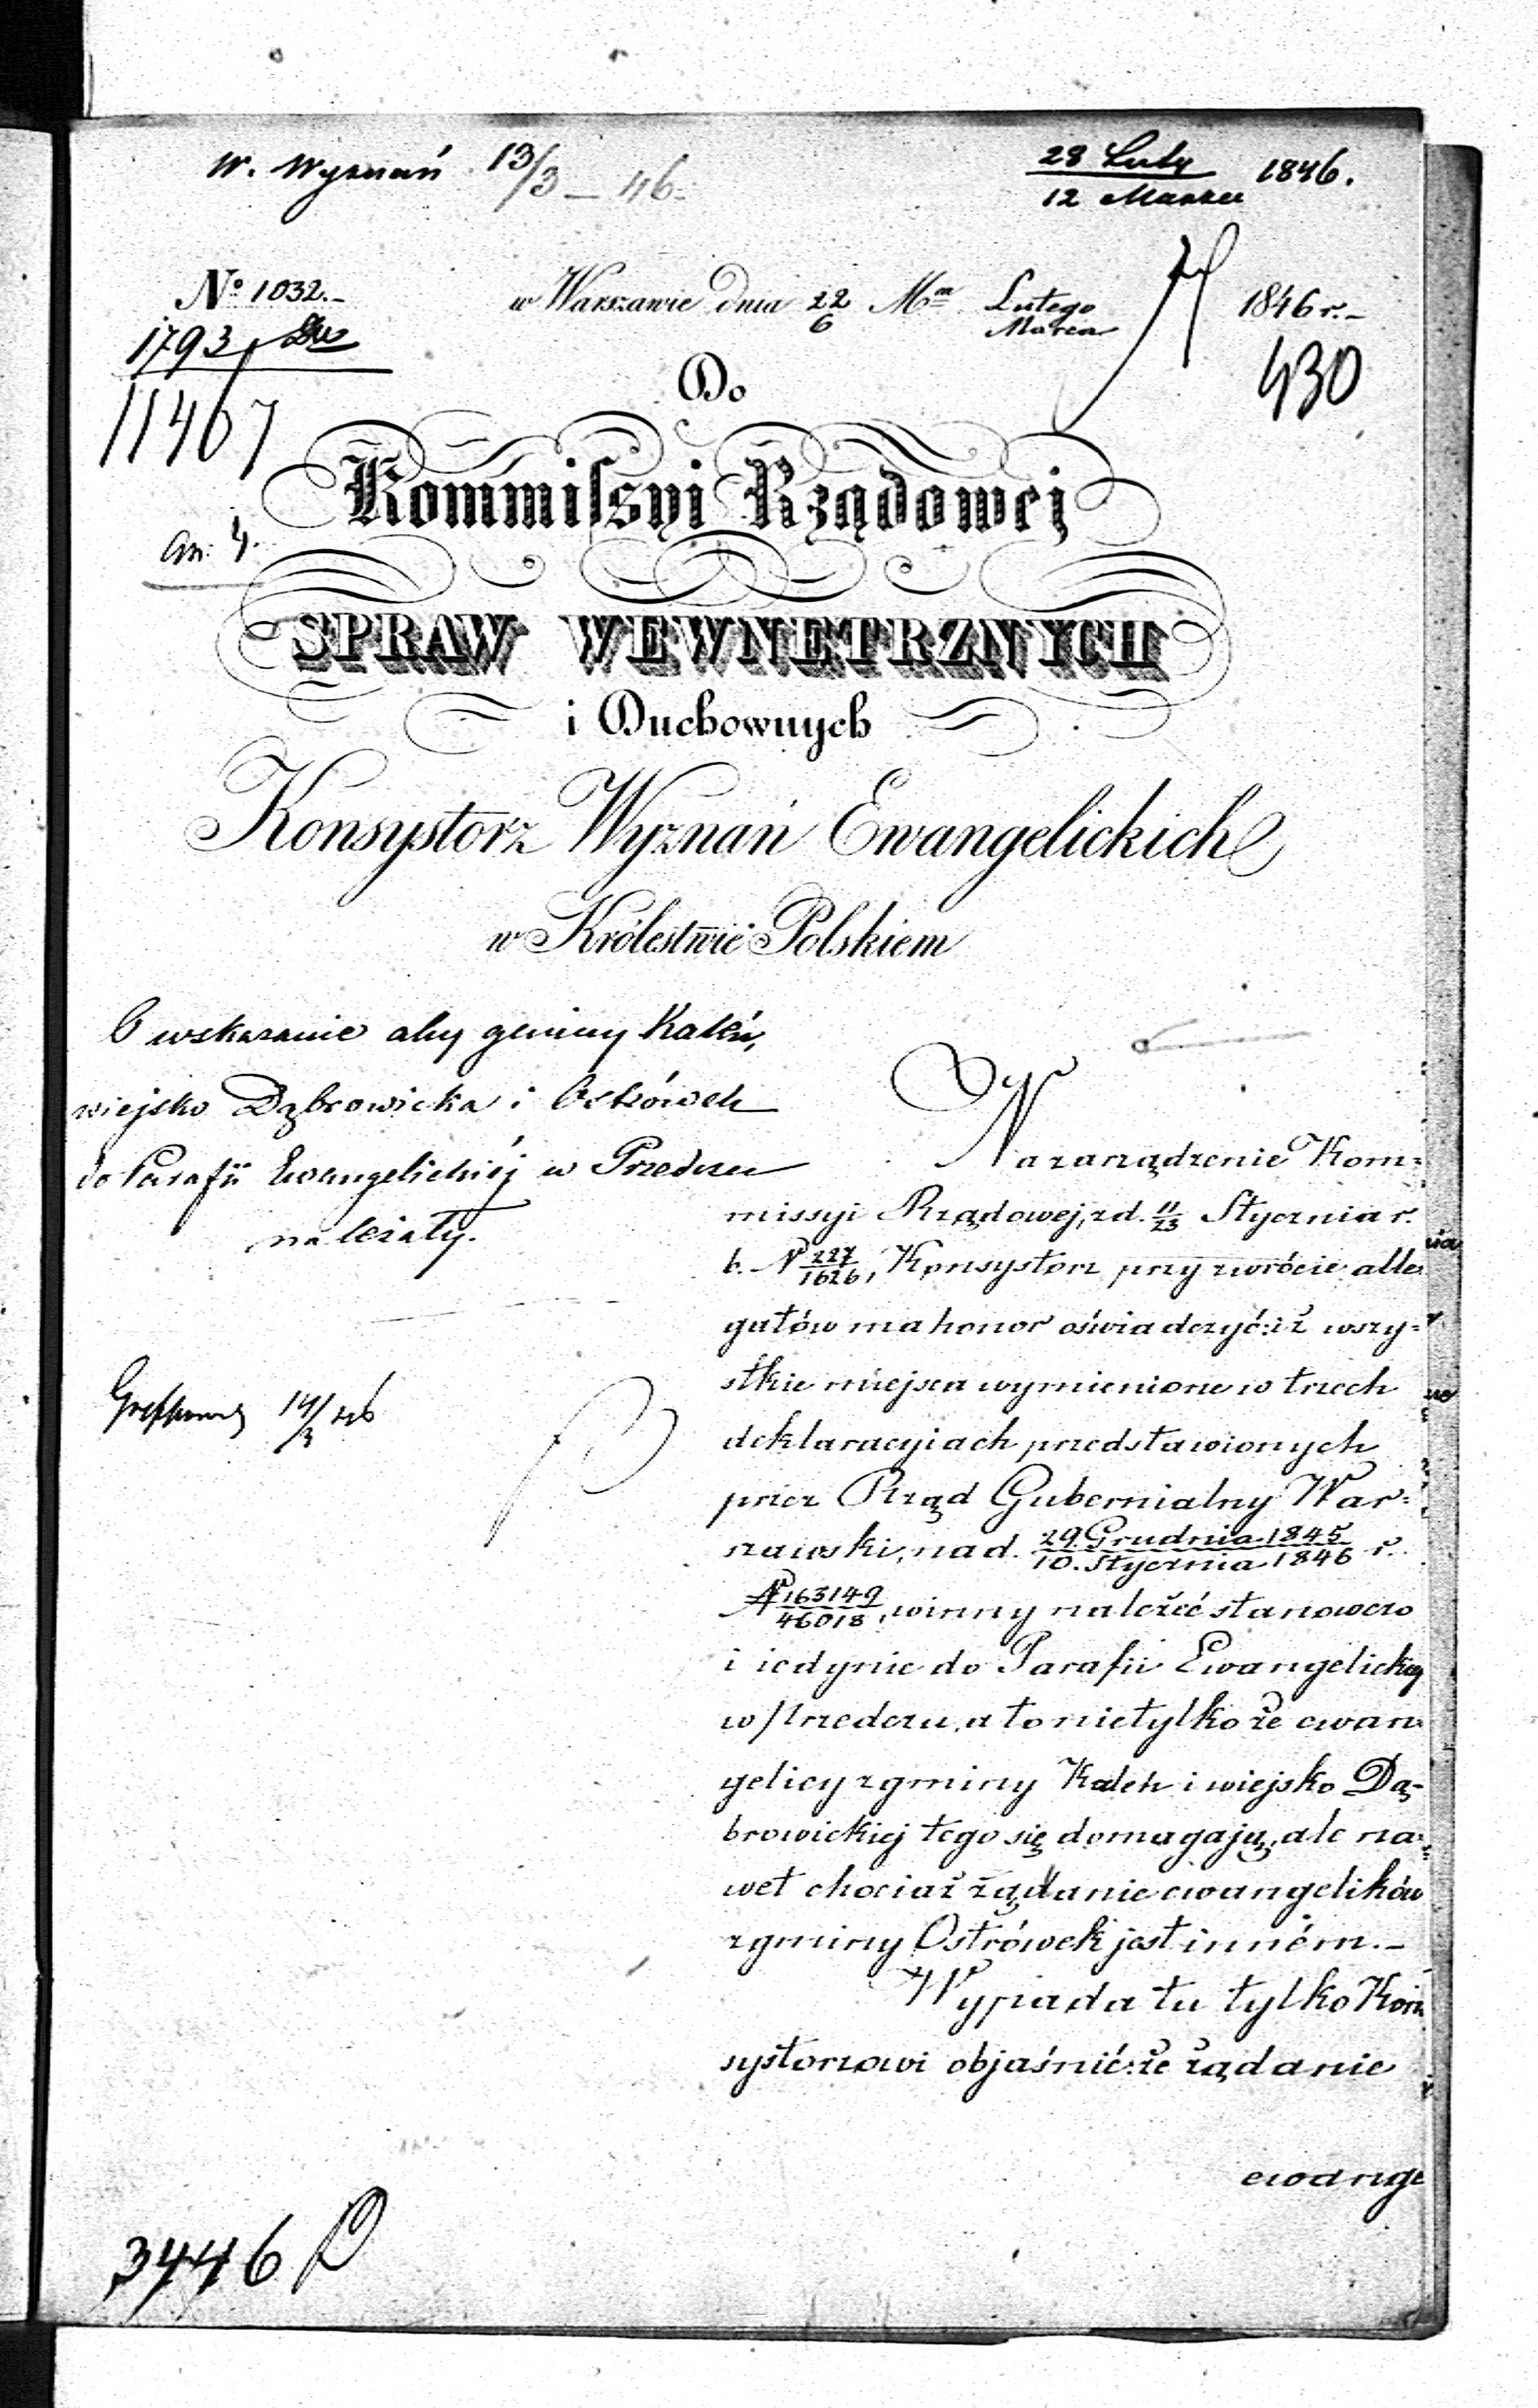 W. Wyznań 13/3 – 46.
28 Luty / 12 Marca 1846.
No 1032.–
w Warszawie dnia 22/6 Mca Lutego/Marca 1846 r.–
1793
11467
430
Do
Kommiſsyi Rządowej
an: 4.
SPRAW WEWNETRZNYCH
i Duchownych
Konsystorz Wyznań Ewangelickich
w Królestwie Polskiem
O wskazanie aby gminy Kaleń,
wiejsko Dąbrowicka i Ostrówek
do Parafii Ewangelickiéj w Przedczu
należały.
14/3 46
Na zarządzenie Kom=
missyi Rządowej, z d. 11/23 Stycznia r.
b. N 227/1626, Konsystorz przy zwrócie alle
gatów ma honor oświadczyć: iż wszy=
stkie miejsca wymienione w trzech
deklaracyiach przedstawionych
przez Rząd Gubernialny War=
szawski, na d. 29. Grudnia 1845 / 10. Stycznia 1846 r.
N 163149/46018, winny należeć stanowczo
i iedynie do Parafii Ewangelickiej
w Przedczu, a to nietylko że ewan
gelicy z gminy Kaleń i wiejsko Dą-
browickiej tego się domagają, ale na=
wet chociaż żądanie ewangelików
z gminy Ostrówek jest inném.–
Wypada tu tylko Kon
systorzowi objaśnić: że żądanie
ewange
3446